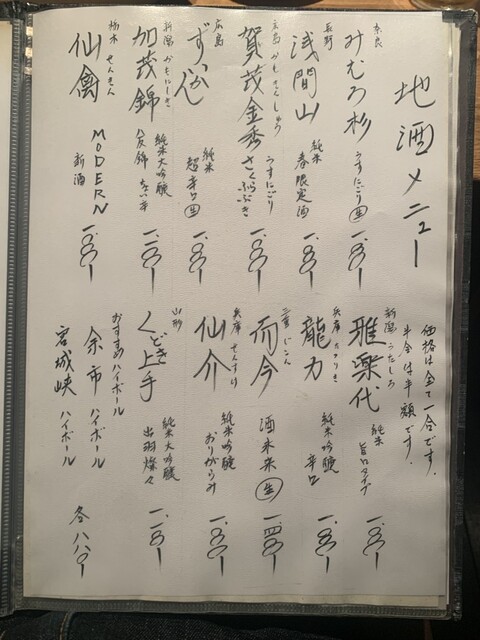 地酒メニュー
奈良
みむろ杉
うすにごり 生
一、〇〇〇
長野
浅間山
純米
春限定酒
一、〇〇〇
広島 かもきんしゅう
賀茂金秀
うすにごり
さくらふぶき
一、〇〇〇
広島
純米
超辛口 生
一、〇〇〇
新潟 かもにしき
加茂錦
純米大吟醸
八反錦
栃木 せんきん
仙禽
MODERN
新酒
一、〇〇〇
価格は全て一合です。
半合は半額です。
新潟 うたしろ
雅楽代
純米
旨口タイプ
一、〇〇〇
兵庫 たつりき
龍力
純米吟醸
辛口
一、〇〇〇
三重 じこん
而今
酒未来 生
一、四〇〇
兵庫 せんすけ
仙介
純米吟醸
おりがらみ
一、〇〇〇
山形
くどき上手
純米大吟醸
出羽燦々
おすすめハイボール
余市ハイボール
宮城峡ハイボール
各八八〇